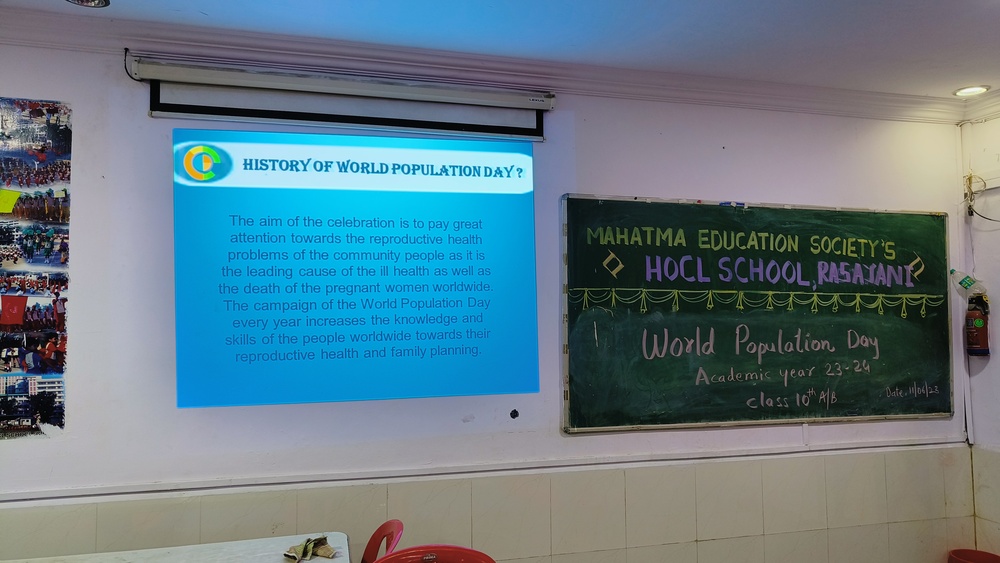 HISTORY OF WORLD POPULATION DAY ?
The aim of the celebration is to pay great
attention towards the reproductive health
problems of the community people as it is
the leading cause of the ill health as well as
the death of the pregnant women worldwide.
The campaign of the World Population Day
every year increases the knowledge and
skills of the people worldwide towards their
reproductive health and family planning.
MAHATMA EDUCATION SOCIETY'S
HOCL SCHOOL, RASAYANI
World Population Day
Academic year 23-24
class 10th A/B